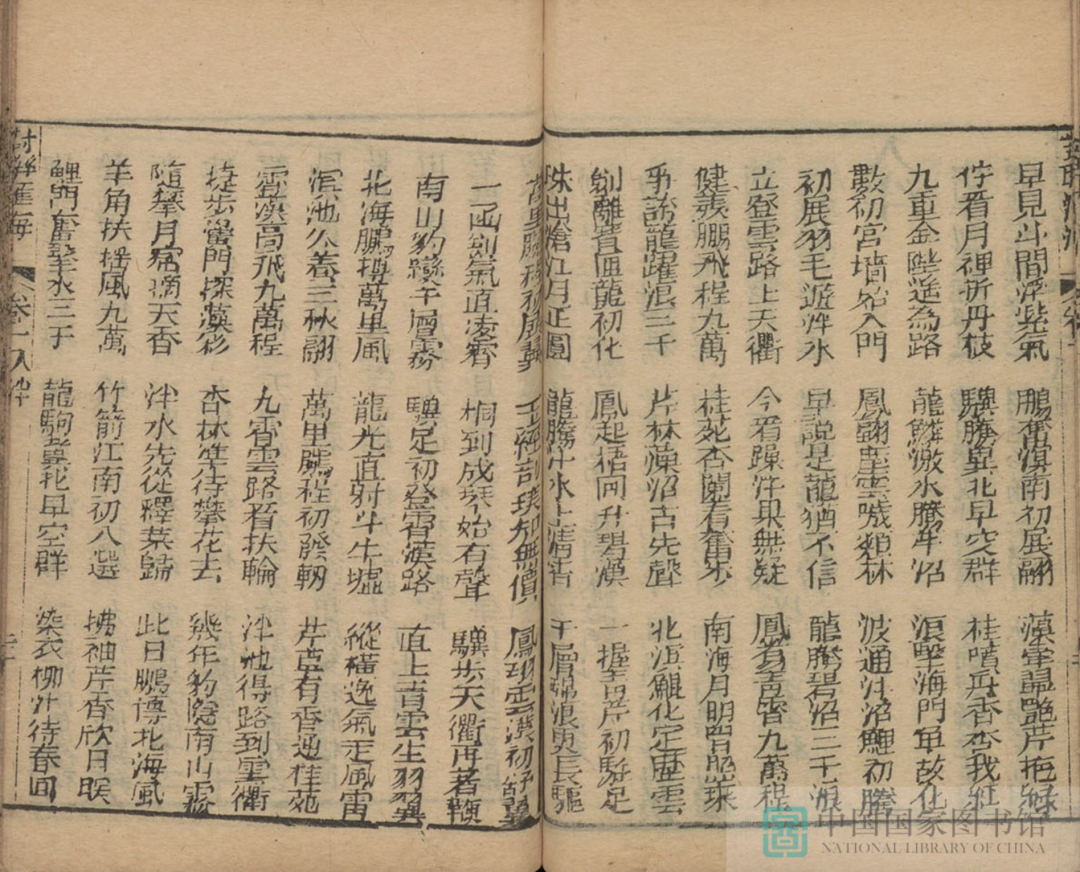 早見斗間浮紫氣 鵬奮溟南初展翮 藻牽 艷芹拖綠
佇看月裡折丹枝 驥騰冀北早空群 桂噴丹香杏我紅
九重金陛遙為路 龍鱗激水騰 沼 浪擊海門 故化
數初宮墻始入門 鳳翮 雲 類林 波通泮沼鯉初騰
初展羽毛遊泮水 早說是龍猶不信 龍騰碧沼三千浪
立登雲路上天衢 今看躁泮果無疑 鳳 霄九萬程
健羨鵬飛程九萬 桂苑杏園看奮步 南海月明 珠
爭誇龍躍浪三千 芹林藻沼古先聲 北溟鯤化定歷雲
劍離 匣龍初化 鳳起梧岡升碧漢 一握 芹初 足
珠出滄江月正圓 龍騰 水上清霄 千層錦浪 長驅
萬里鵬程 風 無價 鳳翔雲漢初
一函劍氣直凌霄 桐到成琴始有聲 驥步天衢再著鞭
南山豹變千層霧 驥足初登霄漢路 直上青雲生羽翼
北海鵬摶萬里風 龍光直射斗牛墟 縱橫逸氣走風雷
溟池久養三秋翮 萬里鵬程初發軔 芹草有香通桂苑
霄漢高飛九萬程 九霄雲路看扶輪 泮池得路到雲衢
捷步黌門探藻彩 杏林準待攀花去 幾年豹隱南山霧
隨攀月窟摘天香 泮水先從釋菜歸 此日鵬博北海風
羊角扶搖風九萬 竹箭江南初入選 拂袖芹香欣日暖
鯉門奮擊水三千 龍駒冀北早空群 染衣柳汁待春回
對 匯海 卷十 入泮
中国国家图书馆
NATIONAL LIBRARY OF CHINA